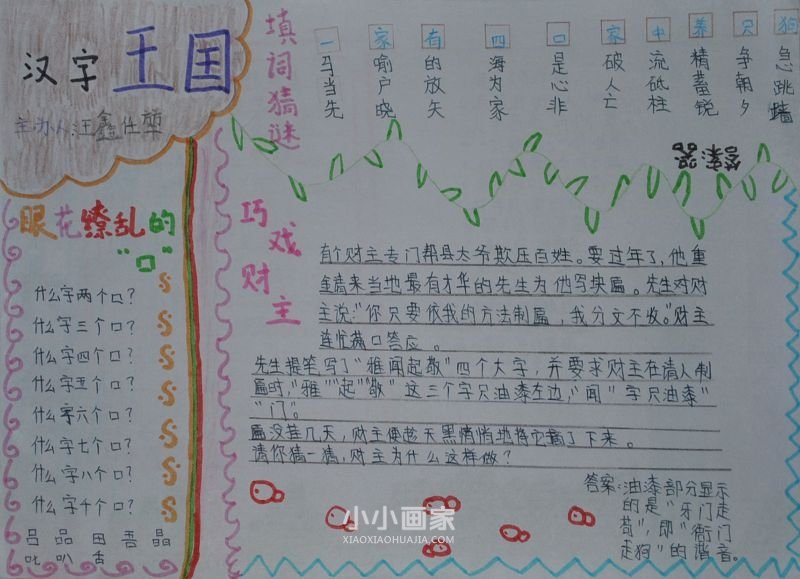 汉字王国
主办人:汪鑫仕堃
眼花缭乱的
"口"
什么字两个口?
什么字三个口?
什么字四个口?
什么字五个口?
什么字六个口?
什么字七个口?
什么字八个口?
什么字千个口?
吕 品 田 吾 晶
叱 叭 舌
填词猜谜
一马当先
家喻户晓
有的放矢
四海为家
口是心非
家破人亡
中流砥柱
养精蓄锐
只争朝夕
狗急跳墙
答案:器
巧戏财主
有个财主专门帮县太爷欺压百姓。要过年了,他重
金请来当地最有才华的先生为他写块匾。先生对财
主说:"你只要依我的方法制匾,我分文不收。"财主
连忙满口答应。
先生提笔写了"雅闻起敬"四个大字,并要求财主在请人制
匾时,"雅""起""敬"这三个字只油漆左边,"闻"字只油漆
"门"。
匾没挂几天,财主便趁天黑悄悄地将它摘了下来。
请你猜一猜,财主为什么这样做?
答案:油漆部分显示
的是"牙门走
苟",即"衙门
走狗"的谐音。
小小画家
XIAOXIAOHUAJIA.COM